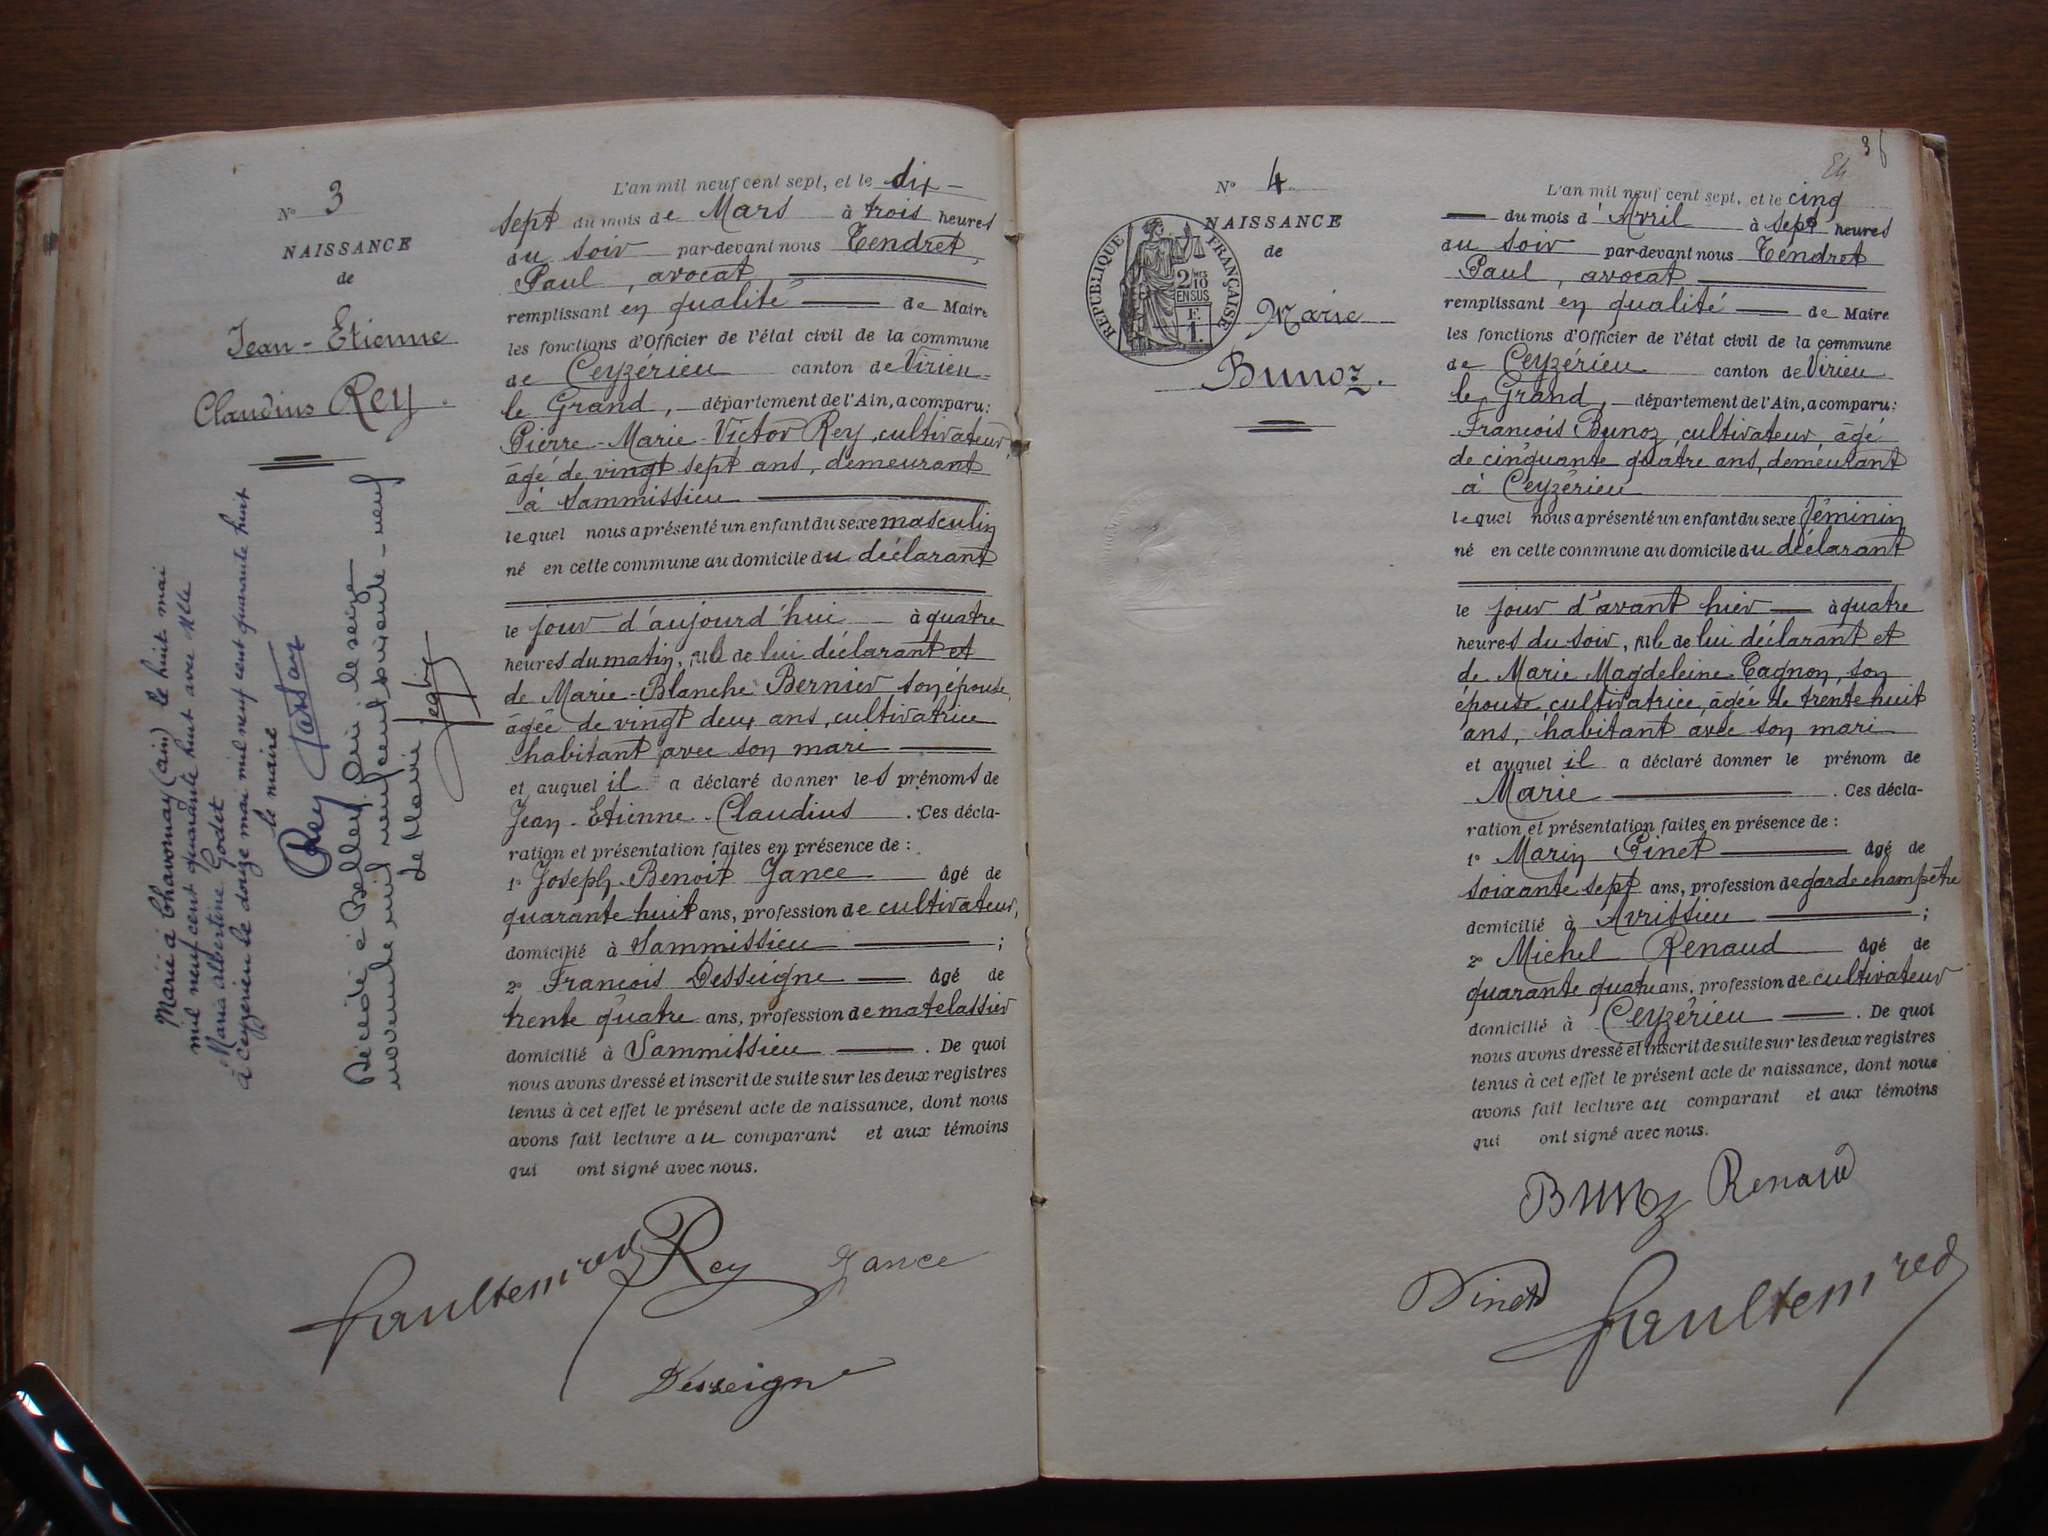 N° 3
NAISSANCE
de
Jean-Etienne
Claudius Rey.
Marié à Chavornay (ain) le huit mai
mil neuf cent quarante huit avec Mlle
Maria albertine Godet
à ceyzerieu le douze mai mil neuf cent quarante huit
le maire
Rey
Décédé à Belley, Ain le seize
novembre mil neuf cent soixante-neuf
Le Maire
L'an mil neuf cent sept, et le dix-
sept du mois de Mars à trois heures
du soir par-devant nous Tendret,
Paul, avocat
remplissant en qualité de Maire
les fonctions d'Officier de l'état civil de la commune
de Ceyzérieu canton de Virieu-
le Grand, département de l'Ain, a comparu:
Pierre-Marie-Victor Rey, cultivateur,
âgé de vingt sept ans, demeurant
à Sammissieu
lequel nous a présenté un enfant du sexe masculin
né en cette commune au domicile du déclarant
le jour d'aujourd'hui à quatre
heures du matin, fils de lui déclarant et
de Marie-Blanche Bernier son épouse,
âgée de vingt deux ans, cultivatrice
habitant avec son mari
et auquel il a déclaré donner les prénoms de
Jean-Etienne-Claudius. Ces décla-
ration et présentation faites en présence de :
1° Joseph Benoit Jance âgé de
quarante huit ans, profession de cultivateur,
domicilié à Sammissieu ;
2° François Desseigne âgé de
trente quatre ans, profession de matelassier
domicilié à Sammissieu. De quoi
nous avons dressé et inscrit de suite sur les deux registres
tenus à cet effet le présent acte de naissance, dont nous
avons fait lecture au comparant et aux témoins
qui ont signé avec nous.
Rey Jance
Desseigne
36
N° 4
NAISSANCE
de
REPUBLIQUE FRANÇAISE
2/10 MES
EN SUS
F.
1.
Marie
Bunoz.
L'an mil neuf cent sept, et le cinq
du mois d'Avril à sept heures
du soir par-devant nous Tendret
Paul, avocat
remplissant en qualité de Maire
les fonctions d'Officier de l'état civil de la commune
de Ceyzérieu canton de Virieu
le Grand, département de l'Ain, a comparu:
François Bunoz, cultivateur, âgé
de cinquante quatre ans, demeurant
à Ceyzérieu
lequel nous a présenté un enfant du sexe féminin
né en cette commune au domicile du déclarant
le jour d'avant hier à quatre
heures du soir, fille de lui déclarant et
de Marie Magdeleine Tagnon, son
épouse, cultivatrice, âgée de trente huit
ans, habitant avec son mari
et auquel il a déclaré donner le prénom de
Marie. Ces décla-
ration et présentation faites en présence de :
1° Marin Pinet âgé de
soixante sept ans, profession de garde champêtre
domicilié à Avrissieu ;
2° Michel Renaud âgé de
quarante quatre ans, profession de cultivateur
domicilié à Ceyzérieu. De quoi
nous avons dressé et inscrit de suite sur les deux registres
tenus à cet effet le présent acte de naissance, dont nous
avons fait lecture au comparant et aux témoins
qui ont signé avec nous.
Bunoz Renaud
Pinet